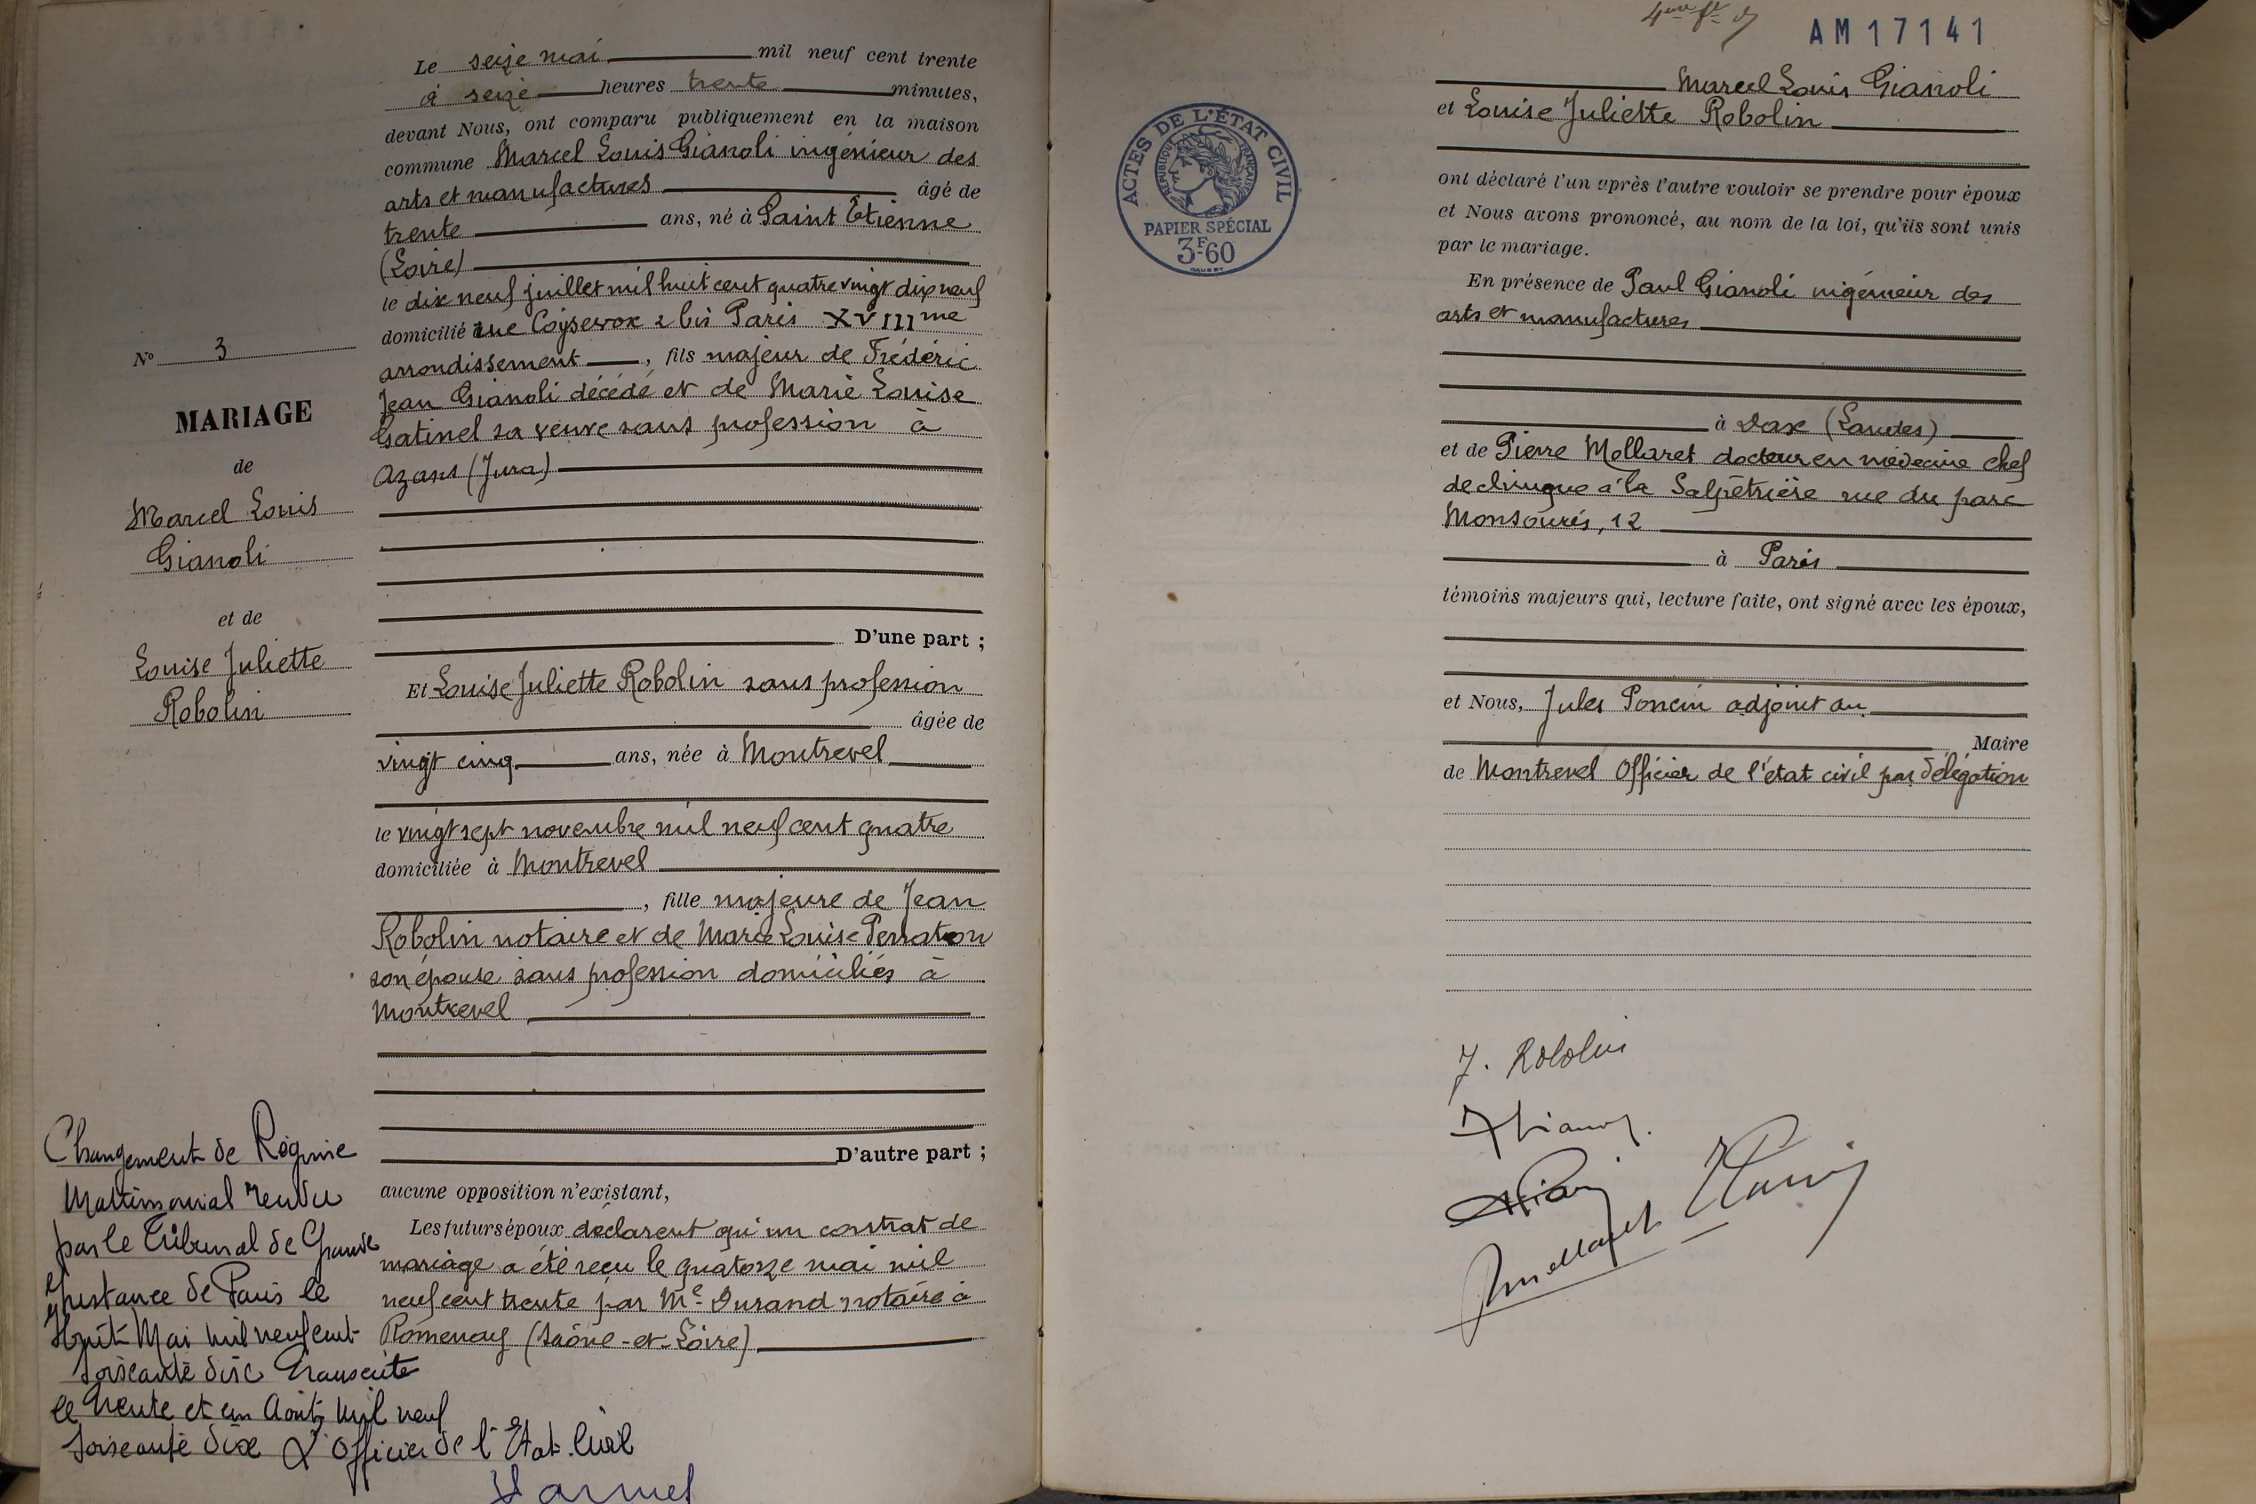 Le seize mai mil neuf cent trente
à seize heures trente minutes,
devant Nous, ont comparu publiquement en la maison
commune Marcel Louis Gianoli ingénieur des
arts et manufactures âgé de
trente ans, né à Saint Étienne
(Loire)
le dix neuf juillet mil huit cent quatre vingt dix neuf
domicilié rue Coysevox 2 bis Paris XVIIIme
arrondissement, fils majeur de Frédéric
Jean Gianoli décédé et de Marie Louise
Gatinel sa veuve sans profession à
Azans (Jura)
D'une part ;
Et Louise Juliette Robolin sans profession
âgée de
vingt cinq ans, née à Montrevel
le vingt sept novembre mil neuf cent quatre
domiciliée à Montrevel
, fille majeure de Jean
Robolin notaire et de Marie Louise Perraton
son épouse sans profession domiciliés à
Montrevel
D'autre part ;
aucune opposition n'existant,
Les futurs époux déclarent qu'un contrat de
mariage a été reçu le quatorze mai mil
neuf cent trente par Me Durand notaire à
Romenay (Saône-et-Loire)
No 3
MARIAGE
de
Marcel Louis
Gianoli
et de
Louise Juliette
Robolin
Changement de Régime
Matrimonial rendu
par le Tribunal de Grande
Instance de Paris le
Huit Mai mil neuf cent
soixante dix Transcrite
le Trente et un Août mil neuf
soixante dix L'Officier de l'Etat Civil
AM17141
Marcel Louis Gianoli
et Louise Juliette Robolin
ont déclaré l'un après l'autre vouloir se prendre pour époux
et Nous avons prononcé, au nom de la loi, qu'ils sont unis
par le mariage.
En présence de Paul Gianoli ingénieur des
arts et manufactures
à Dax (Landes)
et de Pierre Mollaret docteur en médecine chef
de clinique à la Salpêtrière rue du parc
Montsouris, 12
à Paris
témoins majeurs qui, lecture faite, ont signé avec les époux,
et Nous, Jules Poncin adjoint au
Maire
de Montrevel Officier de l'état civil par délégation
J. Robolin
ACTES DE L'ÉTAT CIVIL
RÉPUBLIQUE FRANÇAISE
PAPIER SPÉCIAL
3F60